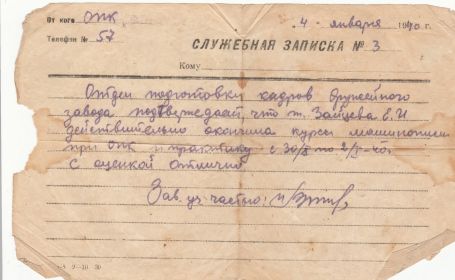 От кого ОПК
4 января 1940 г.
Телефон № 57
СЛУЖЕБНАЯ ЗАПИСКА № 3
Кому
Отдел подготовки кадров Оружейного
завода подтверждает, что т. Зайцева Е. И
действительно окончила курсы машинописи
при ОПК и практику с 30/X по 2/I-40г.
с оценкой отлично
Зав. уч. частью: